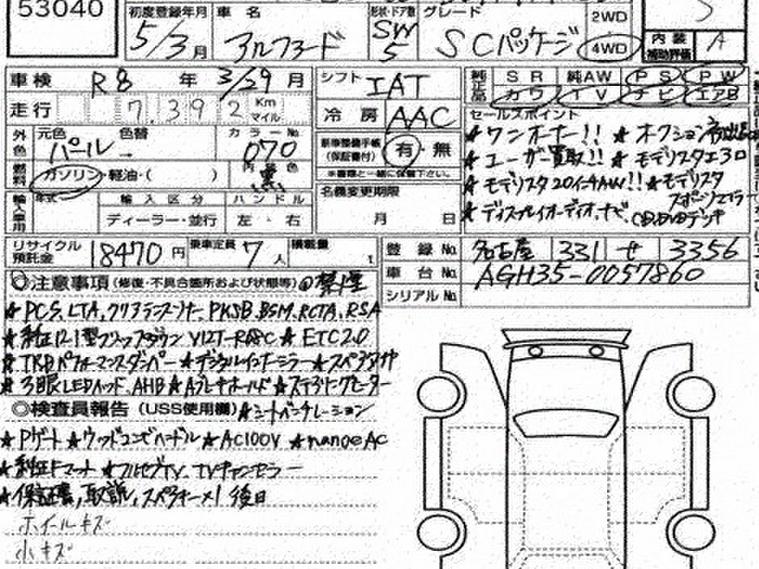 53040 初度登録年月 5/3月 車名 アルファード 形状・ドア数 SW 5 グレード SCパッケージ 2WD 4WD S
内装補助評価 A
車検 R8 年 3/29 月 シフト IAT 純正品 SR 純AW PS PW
走行 7,392 Km マイル 冷房 AAC カワ TV ナビ エアB
外色 元色 色替 カラーNo. パール → 070
新車整備手帳(保証書付) 有・無
※書類と一緒に保管して下さい。
燃料 ガソリン・軽油・( ) 内装色 黒
名義変更期限 月 日
輸入車用 年式 輸入区分 ハンドル
ディーラー・並行 左・右
セールスポイント
★ワンオーナー!! ★オークション初出品
★ユーザー買取!! ★モデリスタエアロ
★モデリスタ20インチAW!! ★モデリスタ
スポーツマフラー
★ディスプレイオーディオ,ナビ, CD,DVDデッキ
リサイクル預託金 18470円 乗車定員 7人 積載量 t
登録No. 名古屋 331 せ 3356
車台No. AGH35-0057860
シリアルNo.
◎注意事項(修復・不具合箇所および状態等) @禁煙
★PCS,LTA,クリアランスソナー,PKSB,BSM,RCTA,RSA
★純正12.1型フリップダウン V12T-R68C ★ETC2.0
★TRDパフォーマンスダンパー ★デジタルインナーミラー ★スペアタイヤ
★3眼LEDヘッド,AHB ★Aブレーキホールド ★ステアリングヒーター
◎検査員報告(USS使用欄) ★シートベンチレーション
★Pゲート ★ウッドコンビハンドル ★AC100V ★nanoeAC
★純正Fマット ★フルセグTV,TVキャンセラー
★保証書,取説,スペアキー×1 後日
ホイールキズ
小キズ